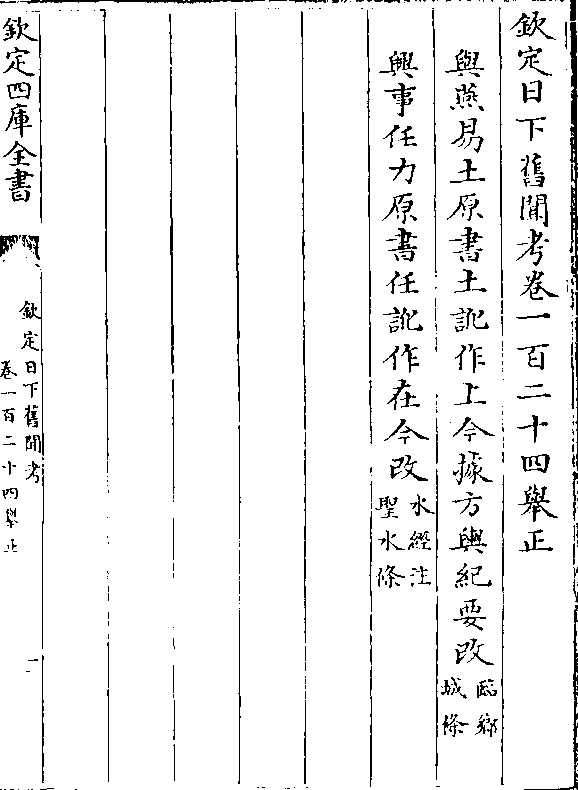 欽定日下舊聞考卷一百二十四舉正
與燕易土原書土訛作上今據方輿紀要改臨鄉
城條
興事任力原書任訛作在今改水經注
聖水條
欽定四庫全書
欽定日下舊聞考
卷一百二十四舉正
一